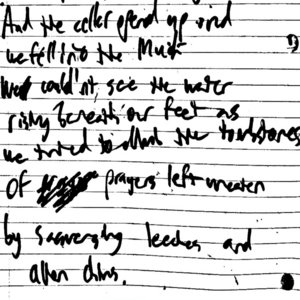 And the cellar opened up and
we fell into the Music
We couldn't see the water
rising beneath our feet as
we tried to the tombstones
Of prayers left uneaten
by scavenging leeches and